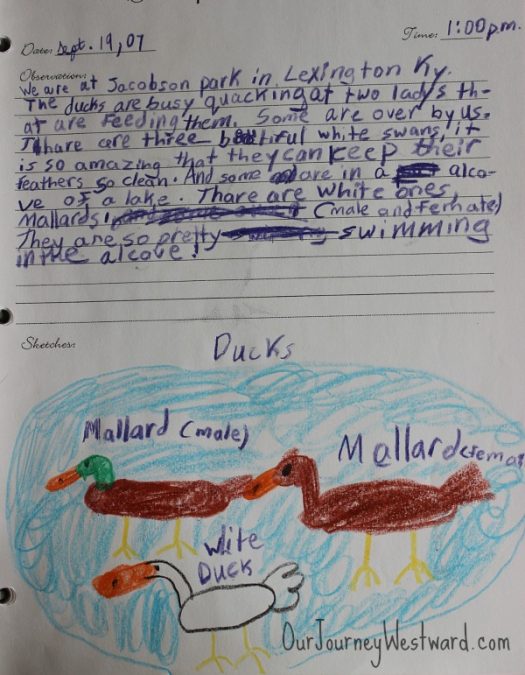 Date: Sept. 19, 07
Time: 1:00 p.m.
Observation:
We are at Jacobson park in Lexington Ky.
The ducks are busy quacking at two lady's th-
at are feeding them. Some are over by us.
Thare are three beutiful white swans, it
is so amazing that they can keep their
feathers so clean. And some are in a alco-
ve of a lake. Thare are white ones,
Mallards (male and femhate)
They are so pretty swimming
in the alcove!
Sketches:
Ducks
Mallard (male)
Mallard (femal
wite
Duck
OurJourneyWestward.com